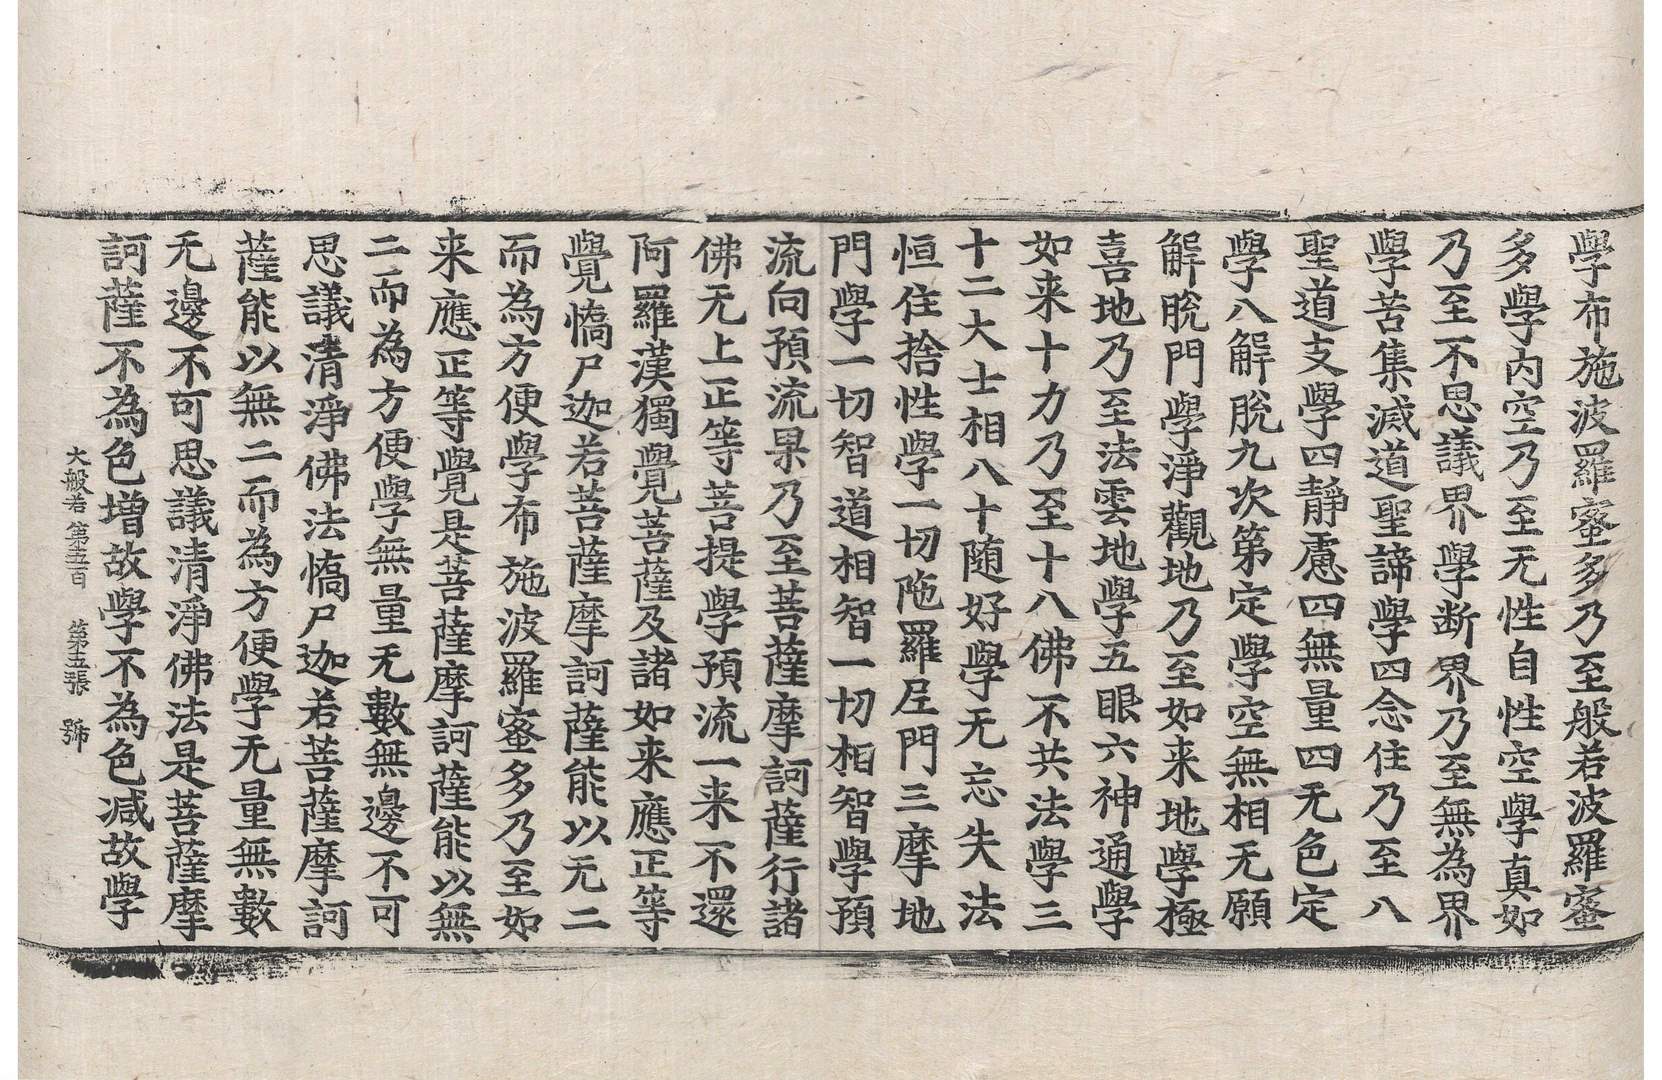 學布施波羅蜜多乃至般若波羅蜜
多學內空乃至无性自性空學真如
乃至不思議界學断界乃至無為界
學苦集滅道聖諦學四念住乃至八
聖道支學四靜慮四無量四无色定
學八解脫九次第定學空無相无願
解脫門學淨觀地乃至如来地學極
喜地乃至法雲地學五眼六神通學
如来十力乃至十八佛不共法學三
十二大士相八十随好學无忘失法
恒住捨性學一切陁羅尼門三摩地
門學一切智道相智一切相智學預
流向預流果乃至菩薩摩訶薩行諸
佛无上正等菩提學預流一来不還
阿羅漢獨覺菩薩及諸如来應正等
覺憍尸迦若菩薩摩訶薩能以无二
而為方便學布施波羅蜜多乃至如
来應正等覺是菩薩摩訶薩能以無
二而為方便學無量无數無邊不可
思議清淨佛法憍尸迦若菩薩摩訶
薩能以無二而為方便學无量無數
无邊不可思議清淨佛法是菩薩摩
訶薩不為色增故學不為色减故學
大般若第五百 第五張 號